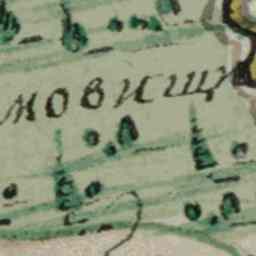 мовищи